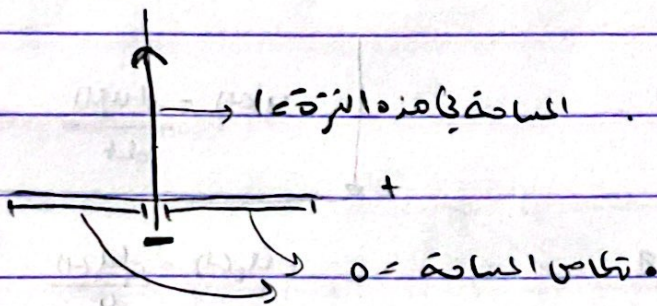 المساحة في هذه الفترة = 1
t
. تكامل المساحة = 0